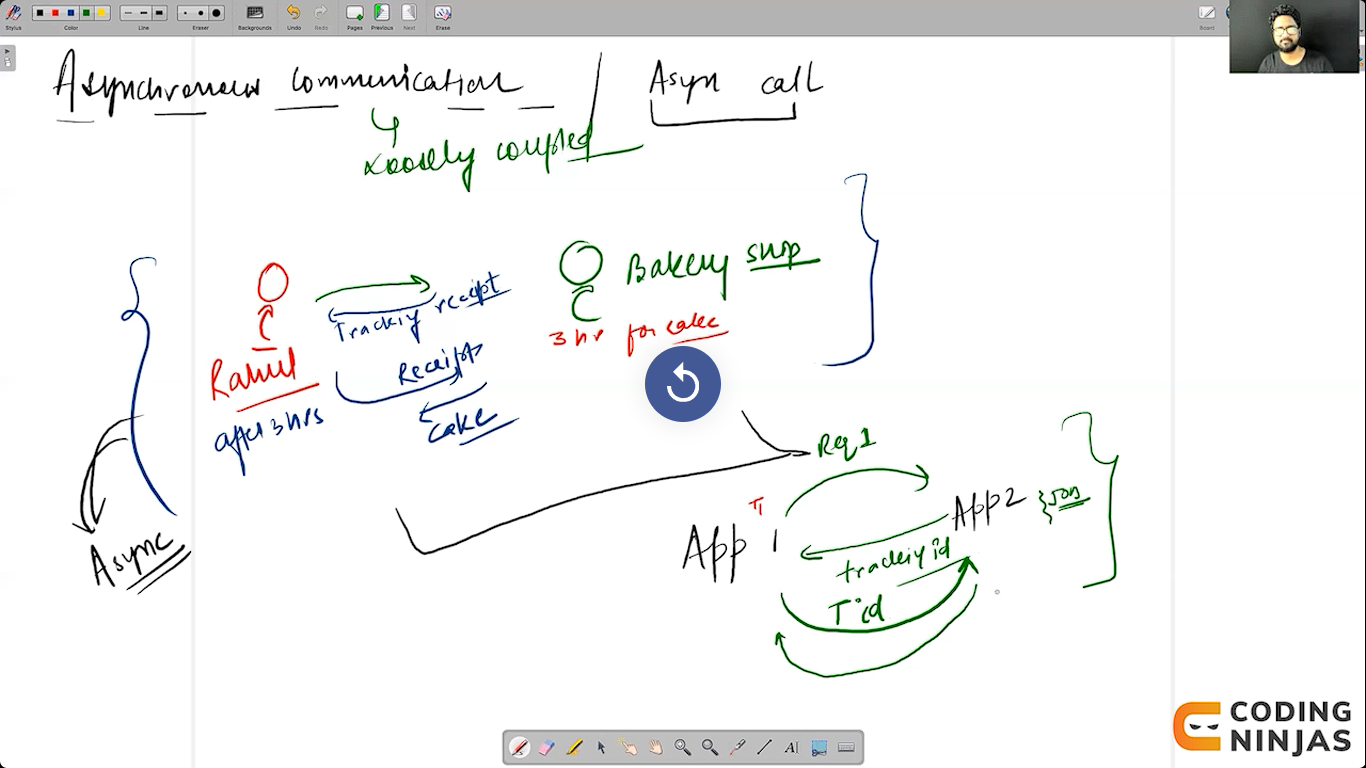 Stylus
Color
Line
Eraser
Backgrounds
Undo
Redo
Pages
Previous
Next
Erase
Board
Asynchronous communication / Asyn call
Loosely coupled
Bakery shop
Tracking receipt
3 hr for cake
Rahul
Receipt
after 3 hrs
cake
Req 1
App 1
App 2
tracking id
T id
Async
CODING
NINJAS